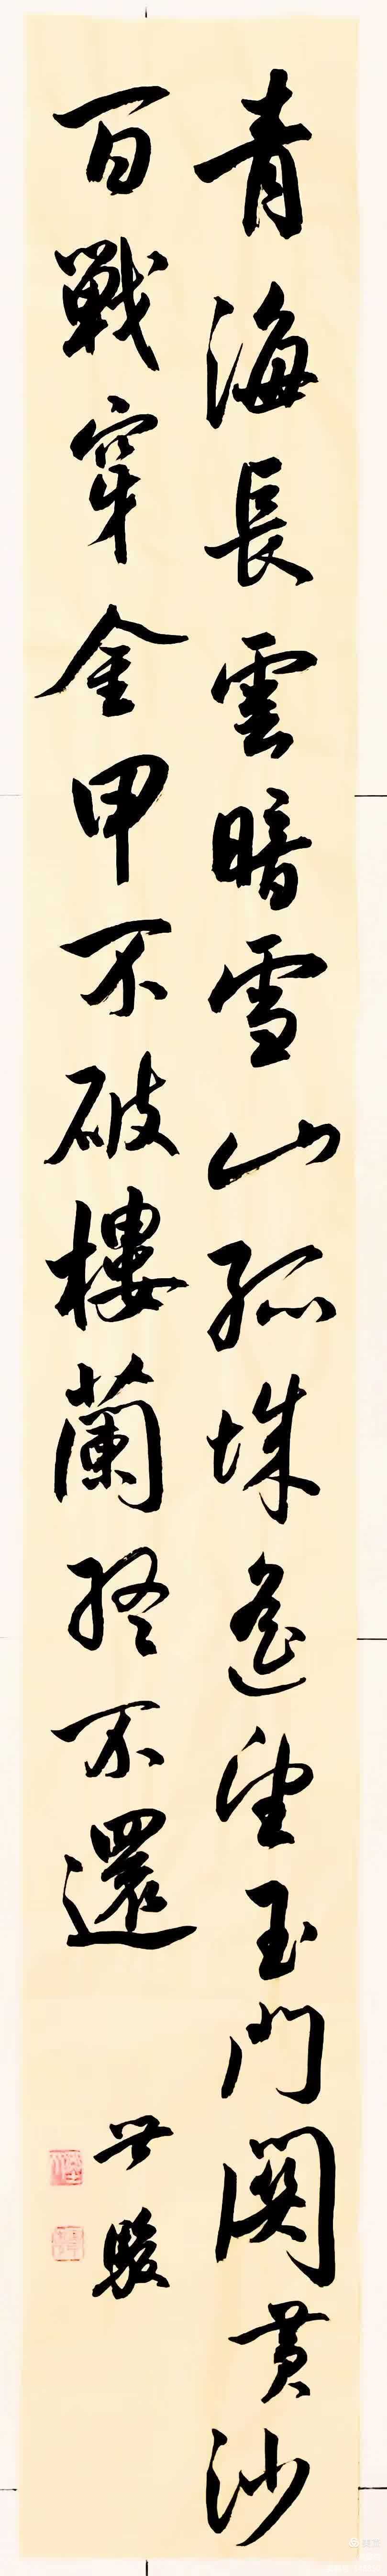 青海長雲暗雪山孤城遙望玉門関黄沙
百戰穿金甲不破樓蘭終不還
世駿